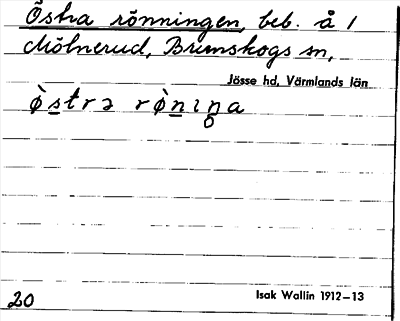 Östra rönningen, beb. å 1
Mölnerud, Brunskogs sn,
Jösse hd, Värmlands län
ø̀strə rø̀nıŋa
20
Isak Wallin 1912–13